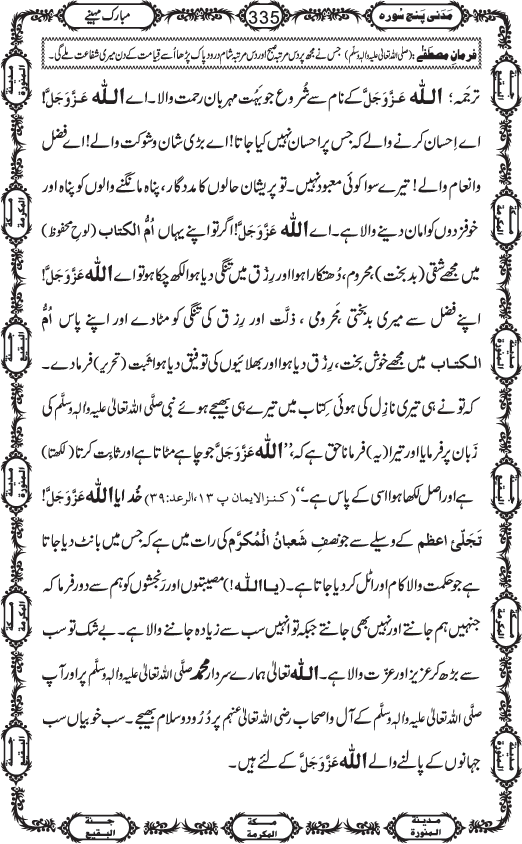 مَدَنی پنج سورہ 335 مبارک مہینے
فرمانِ مصطفٰے: (صلی اللہ تعالیٰ علیہ واٰلہٖ وسلم) جس نے مجھ پر دس مرتبہ صبح اور دس مرتبہ شام درود پاک پڑھا اُسے قیامت کے دن میری شفاعت ملے گی۔
ترجَمہ: اللہ عَزَّوَجَلَّ کے نام سے شُروع جو بَہُت مہربان رحمت والا۔ اے اللہ عَزَّوَجَلَّ!
اے اِحسان کرنے والے کہ جس پر احسان نہیں کیا جاتا! اے بڑی شان و شوکت والے! اے فضل
وانعام والے! تیرے سوا کوئی معبود نہیں۔ تو پریشان حالوں کا مددگار، پناہ مانگنے والوں کو پناہ اور
خوفزدوں کو امان دینے والا ہے۔ اے اللہ عَزَّوَجَلَّ! اگر تو اپنے یہاں اُمُّ الکتاب (لوحِ محفوظ)
میں مجھے شقی (بدبخت) محروم، دُھتکارا ہوا اور رِزْق میں تنگی دیا ہوا لکھ چکا ہو تو اے اللہ عَزَّوَجَلَّ!
اپنے فضل سے میری بدبختی، مَحرومی، ذلّت اور رِزْق کی تنگی کو مٹادے اور اپنے پاس اُمُّ
الکتاب میں مجھے خوش بخت، رِزْق دیا ہوا اور بھلائیوں کی توفیق دیا ہوا ثبت (تحریر) فرمادے۔
کہ تو نے ہی تیری نازِل کی ہوئی کتاب میں تیرے ہی بھیجے ہوئے نبی صلَّی اللہ تعالیٰ علیہ واٰلہٖ وسلَّم کی
زَبان پر فرمایا اور تیرا (یہ) فرمانا حق ہے کہ، ’’اللہ عَزَّوَجَلَّ جو چاہے مٹاتا ہے اور ثابِت کرتا (لکھتا)
ہے اور اصل لکھا ہوا اسی کے پاس ہے۔‘‘ (کنزالایمان پ ۱۳، الرعد: ۳۹) خُدایا اللہ عَزَّوَجَلَّ!
تَجَلّیِٔ اعظم کے وسیلے سے جو نصفِ شَعبانُ الْمُکرَّم کی رات میں ہے کہ جس میں بانٹ دیا جاتا
ہے جو حکمت والا کام اور اٹل کردیا جاتا ہے۔ (یا اللہ!) مصیبتوں اور رَنجشوں کو ہم سے دور فرما کہ
جنہیں ہم جانتے اور نہیں بھی جانتے جبکہ تو انہیں سب سے زیادہ جاننے والا ہے۔ بے شک تو سب
سے بڑھ کر عزیز اور عزّت والا ہے۔ اللہ تعالیٰ ہمارے سردار محمد صلَّی اللہ تعالیٰ علیہ واٰلہٖ وسلَّم پر اور آپ
صلَّی اللہ تعالیٰ علیہ واٰلہٖ وسلَّم کے آل و اصحاب رضی اللہ تعالیٰ عنہم پر دُرُود و سلام بھیجے۔ سب خوبیاں سب
جہانوں کے پالنے والے اللہ عَزَّوَجَلَّ کے لئے ہیں۔
مدینۃ المنورۃ
جنۃ البقیع
مکۃ المکرمۃ
مکۃ المکرمۃ
جنۃ البقیع
مدینۃ المنورۃ
مدینۃ المنورۃ
جنۃ البقیع
مکۃ المکرمۃ
مکۃ المکرمۃ
جنۃ البقیع
مدینۃ المنورۃ
جنۃ البقیع
مکۃ المکرمۃ
مدینۃ المنورۃ